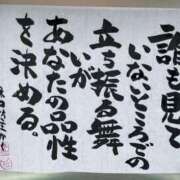 誰も見て
いないところでの
立ち振る舞
いが
あなたの品性
を決める。